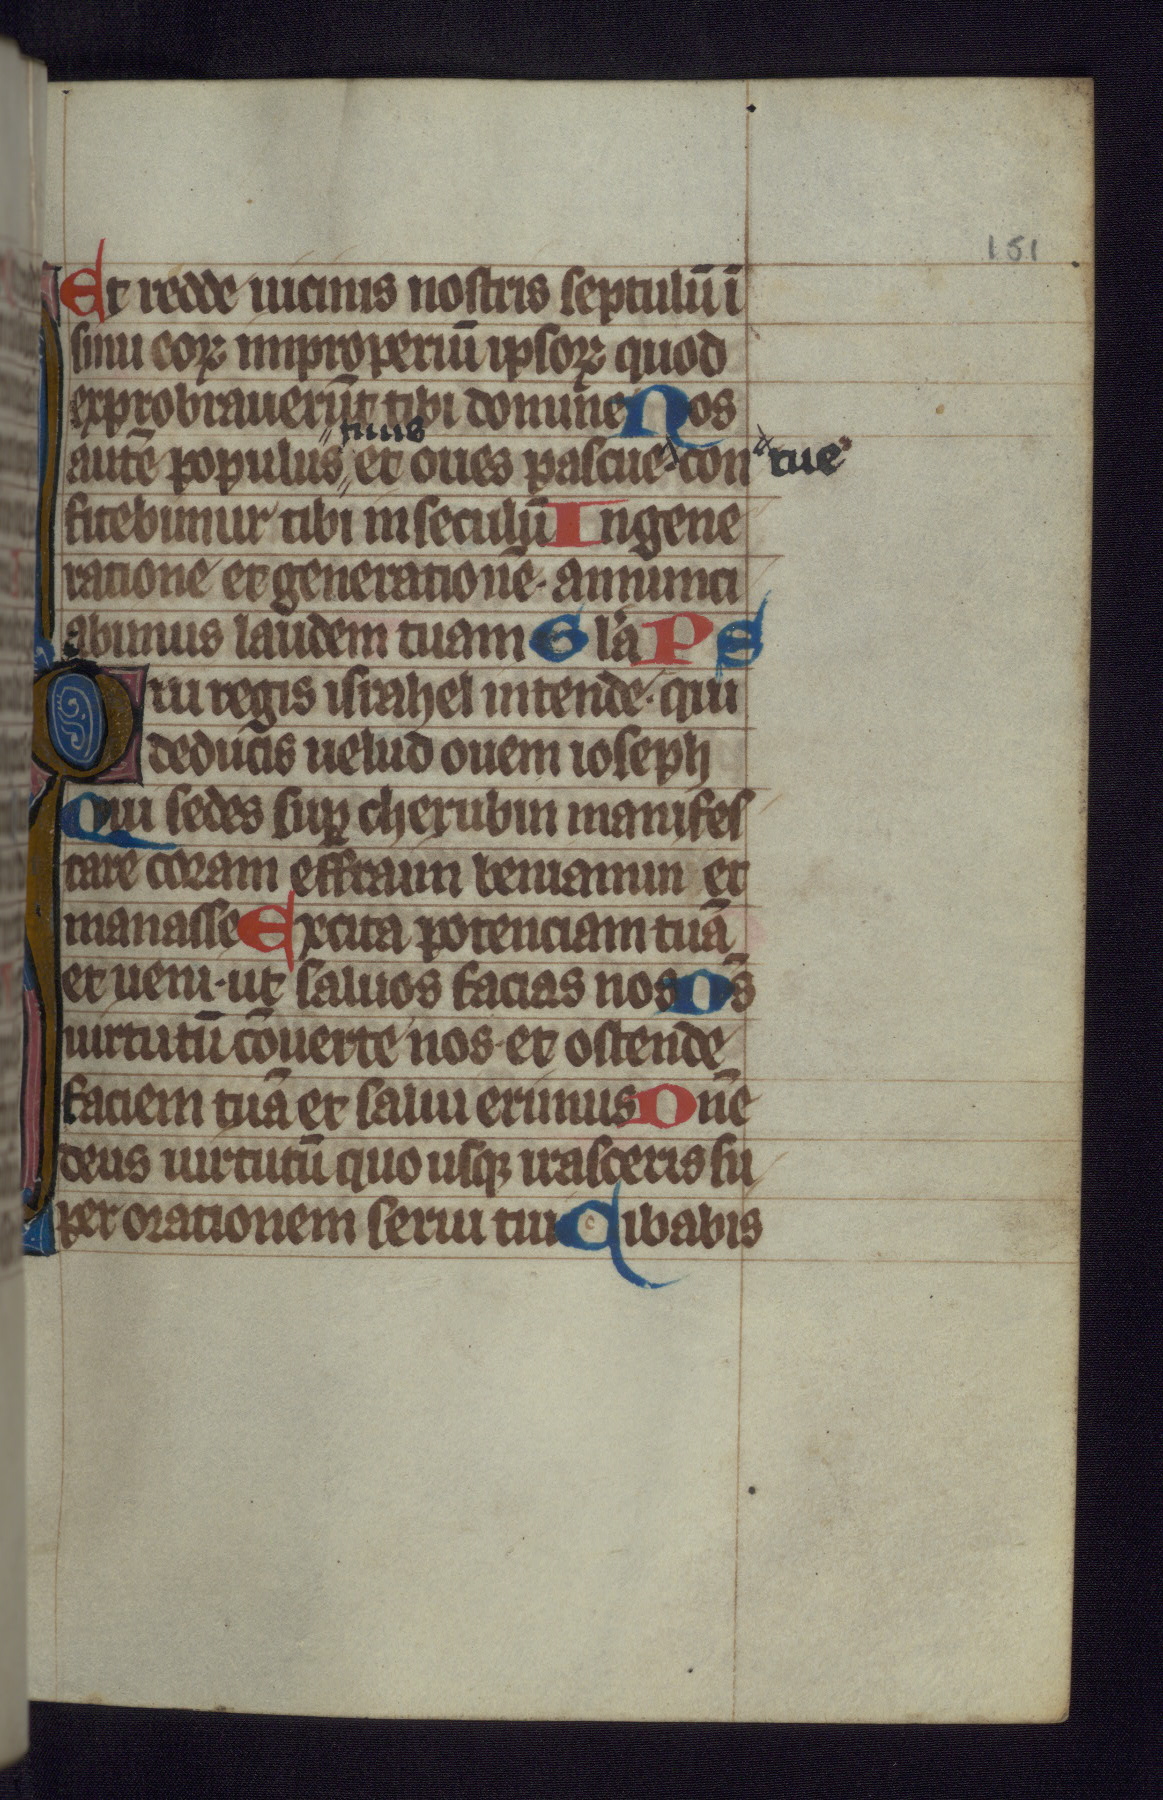 151
Et redde uicinis nostris septulū ī
sinu eoꝝ improperiū ipsoꝝ quod
exprobrauerūt tibi domine Nos
autē populus tuus et oues pascue tue con
fitebimur tibi in seculū In gene
ratione et generationē· annunci
abimus laudem tuam Gl'a PS
Qui regis israhel intende· qui
deducis uelud ouem ioseph
Qui sedes suꝑ cherubin manifes
tare coram effraim beniamin et
manasse Excita potenciam tuā
et ueni· ut saluos facias nos D̄s
uirtutū cōuerte nos· et ostende
faciem tuā et salui erimus Dn̄e
deus uirtutū quo usqꝫ irasceris su
per orationem serui tui Cibabis